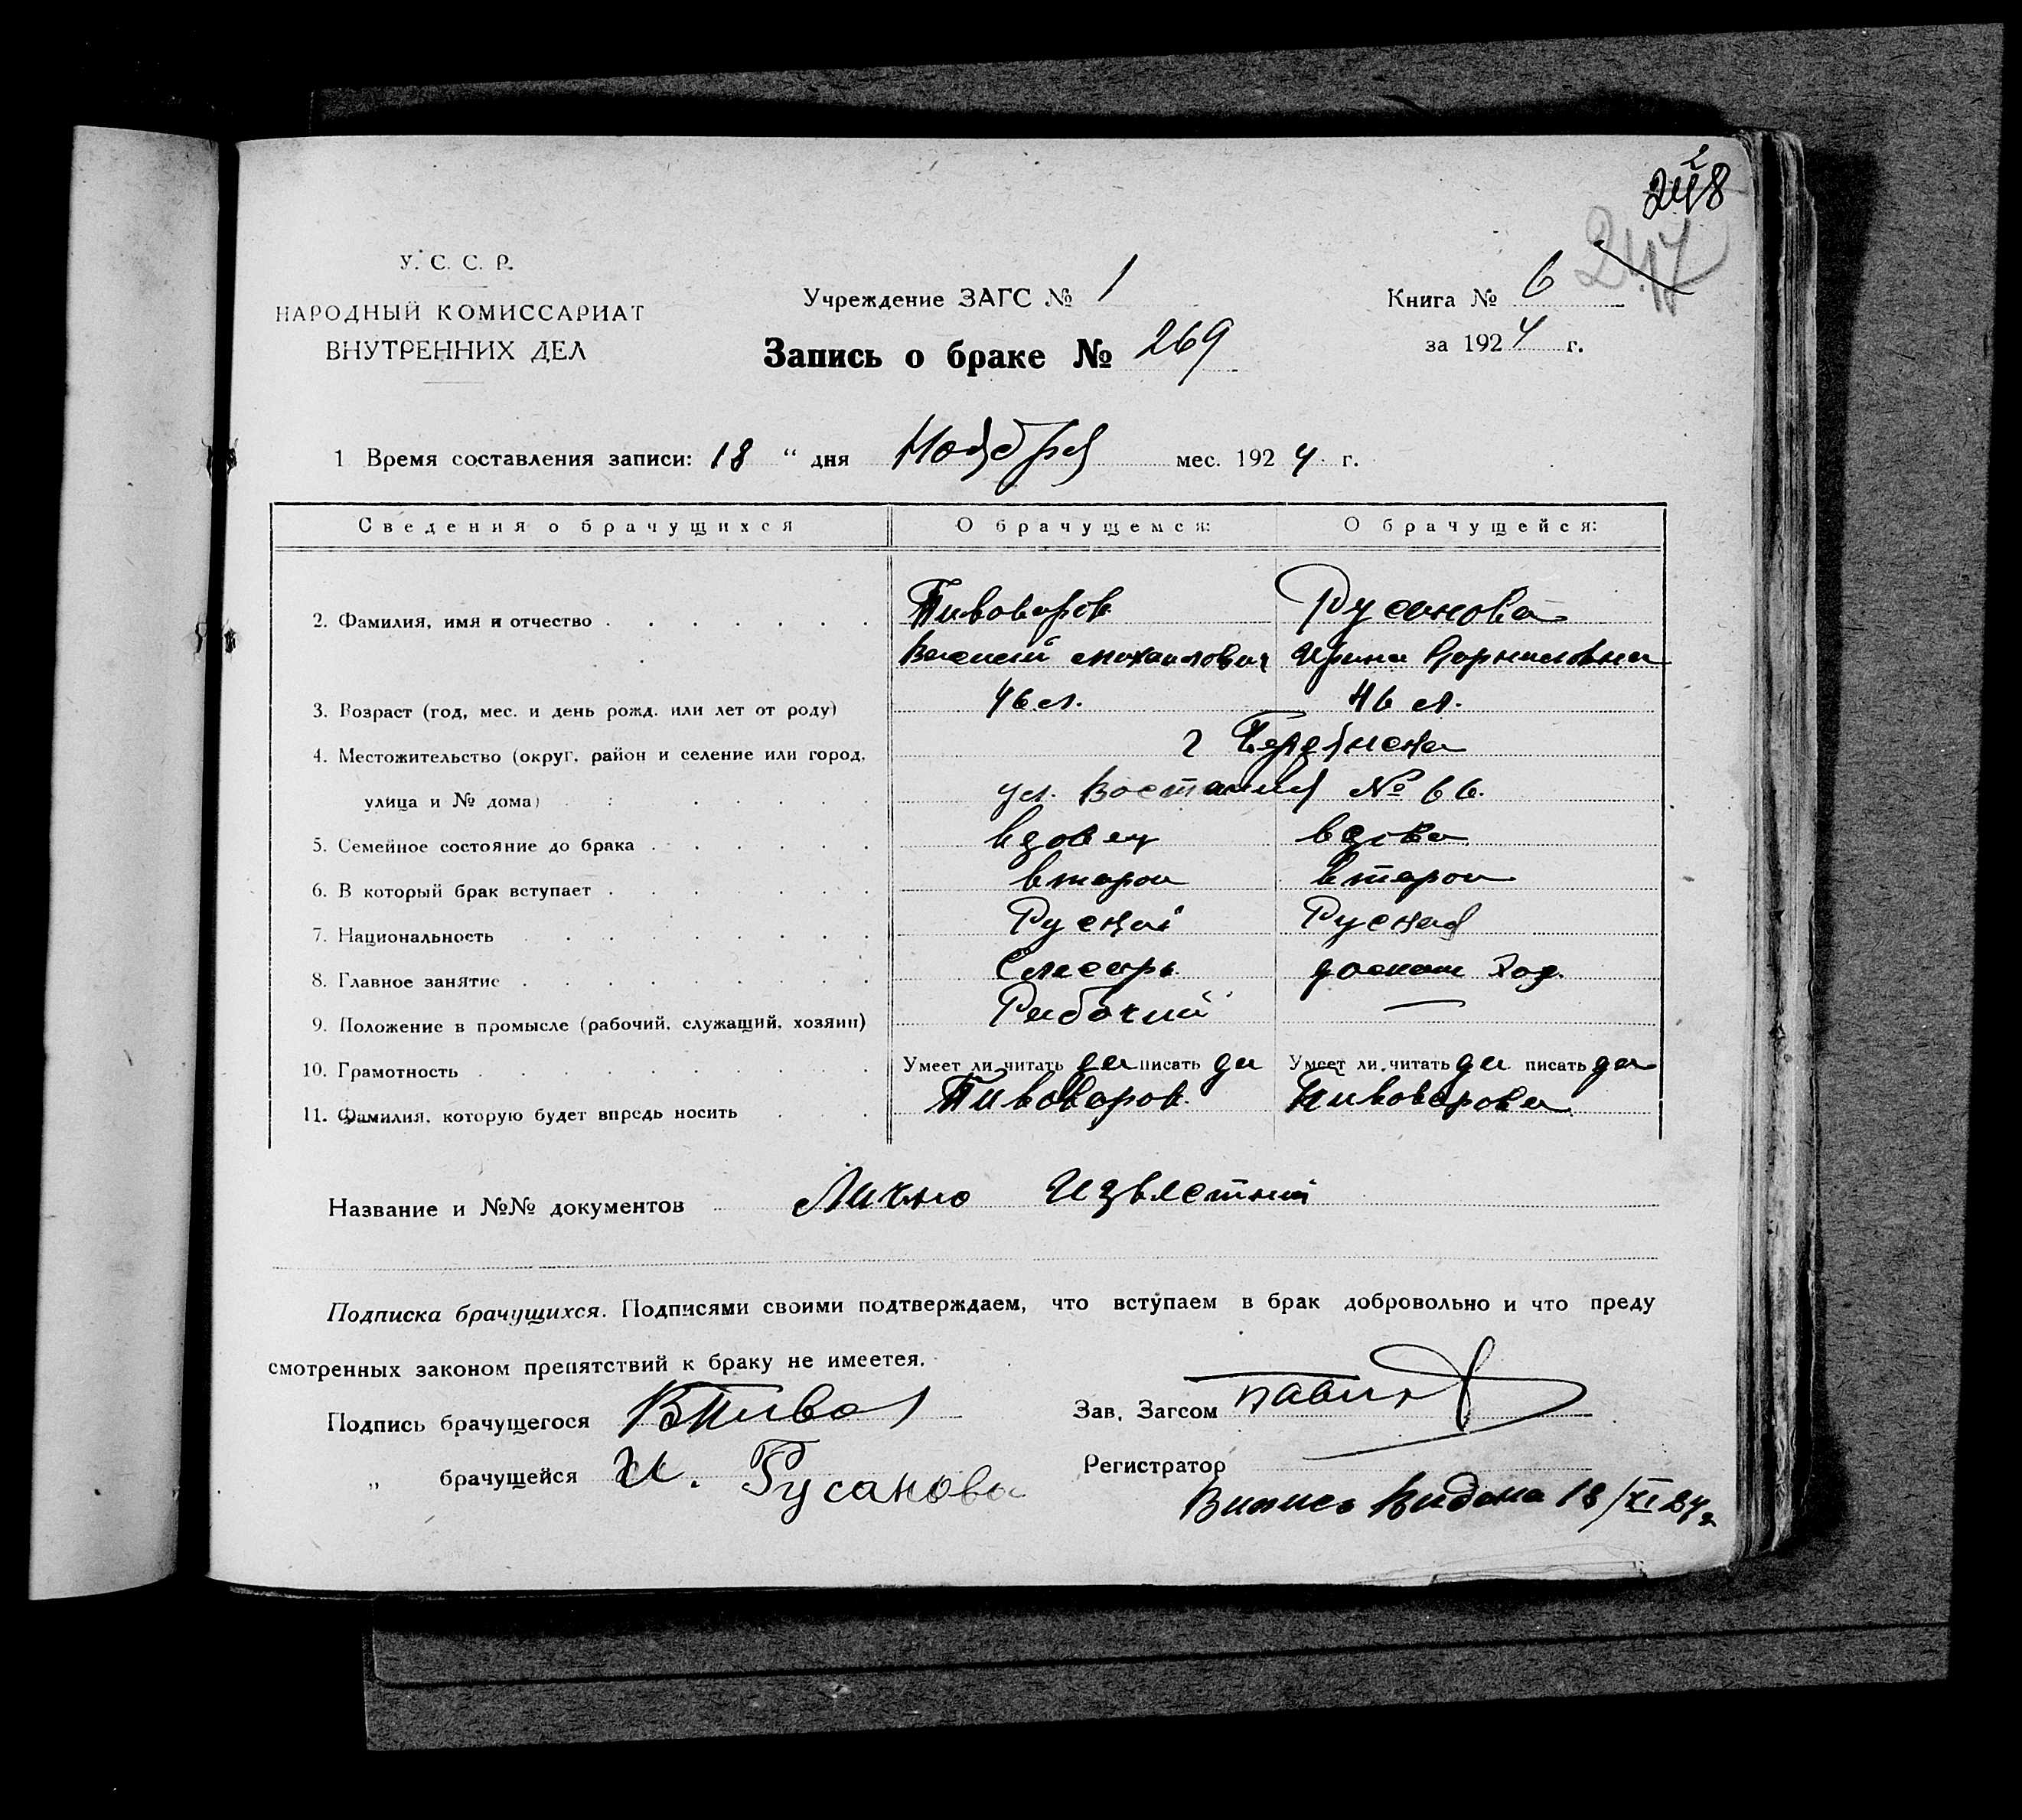 248
247
У. С. С. Р.
НАРОДНЫЙ КОМИССАРИАТ
ВНУТРЕННИХ ДЕЛ
Учреждение ЗАГС № 1
Запись о браке № 269
Книга № 6
за 1924 г.
1 Время составления записи: 18 " дня Ноября мес. 1924 г.
Сведения о брачущихся О брачущемся: О брачущейся:
2. Фамилия, имя и отчество Пивоваров Русанова
Василий Михаилович Ирина Корниловна
3. Возраст (год, мес. и день рожд. или лет от роду) 46 л. 46 л.
4. Местожительство (округ, район и селение или город, г
улица и № дома) ул. Востания № 66.
5. Семейное состояние до брака вдовец вдова
6. В который брак вступает второи второи
7. Национальность Рускаи Руская
8. Главное занятие Слесарь. Хоз.
9. Положение в промысле (рабочий, служащий, хозяин) Рабочий —
10. Грамотность Умеет ли читать да писать да Умеет ли читать да писать да
11. Фамилия, которую будет впредь носить Пивоваров Пивоварова
Название и №№ документов Лично Известни
Подписка брачущихся. Подписями своими подтверждаем, что вступаем в брак добровольно и что преду
смотренных законом препятствий к браку не имеетея.
Подпись брачущегося ВПивов
Зав. Загсом
„ брачущейся И. Русанова
Регистратор
Випись Видана 18/XI 24 г